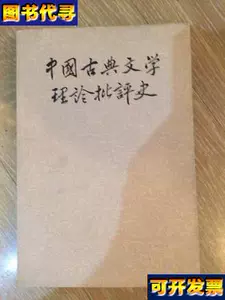 图书代寻
中國古典文学
理论批評史
可开发票